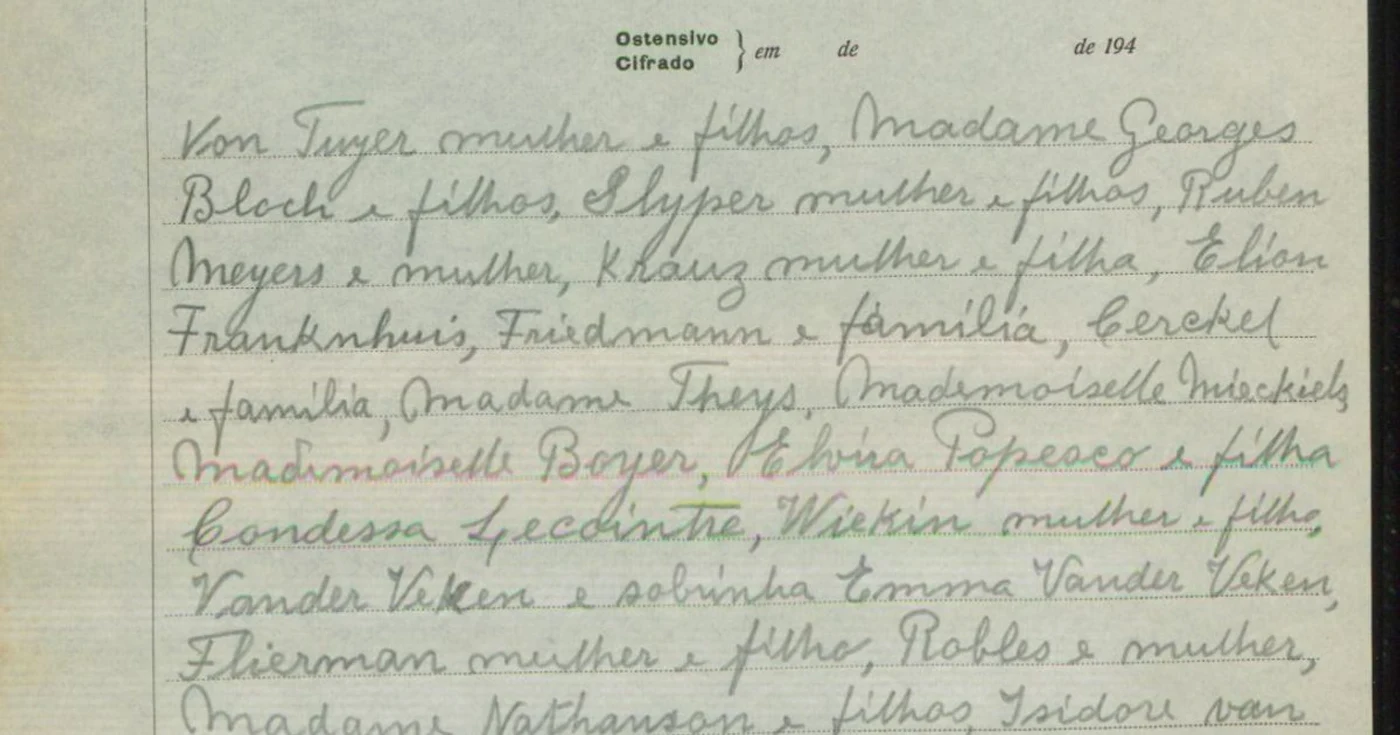 Ostensivo
Cifrado } em de de 194
Von Tuyer mulher e filhos, Madame Georges
Bloch e filhos, Slyper mulher e filhos, Ruben
Meyers e mulher, Krauz mulher e filha, Elion
Franknhuis, Friedmann e família, Cerckel
e família, Madame Theys, Mademoiselle Mieckiels
Mademoiselle Boyer, Elvira Popesco e filha
Condessa Lecointre, Wiekin mulher e filho,
Vander Veken e sobrinha Emma Vander Veken,
Flierman mulher e filho, Robles e mulher,
Madame Nathanson e filhos, Isidore van